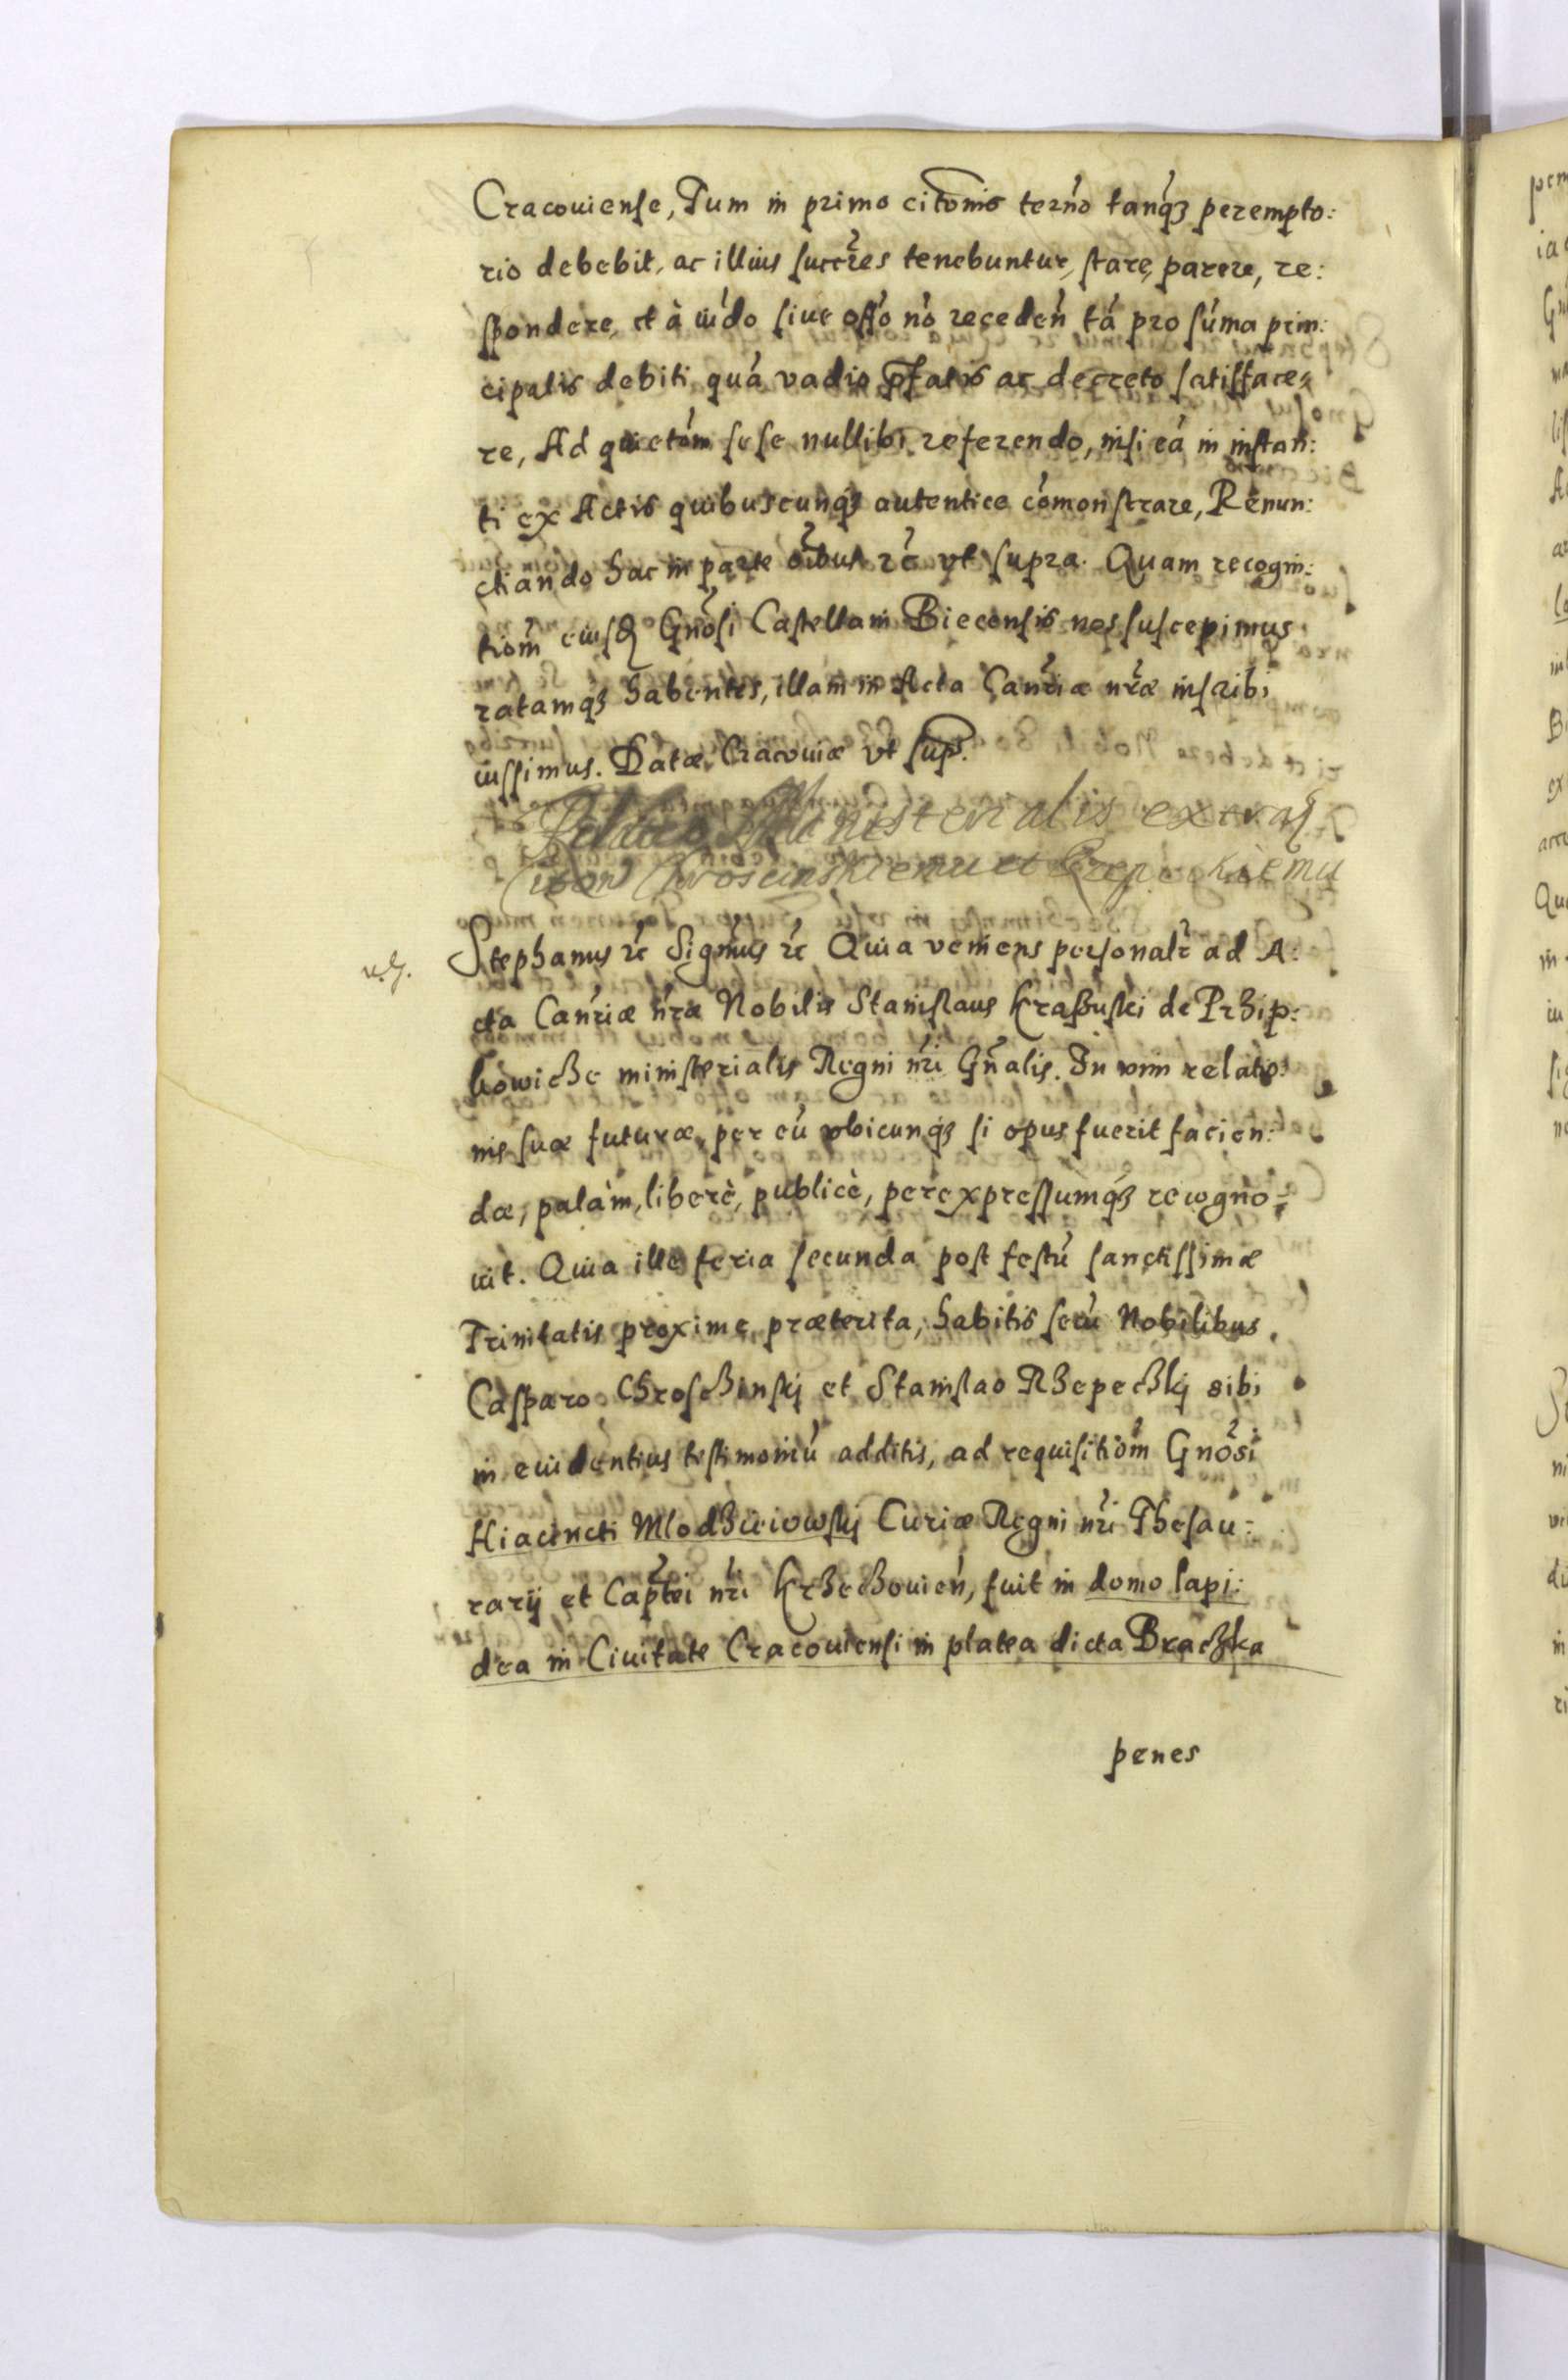 Cracouiense, Tum in primo citonis termo tanq́ꝫ perempto:
rio debebit, ac illius succres tenebuntur, stare, parere, re:
spondere, et à iúdo siue offó nó recedeń tá pro súma prin:
cipalis debiti quá vadio pfatis ac decreto satisface:
re, Ad quietóm sese nullibi referendo, nisi eá in instan:
ti ex Actis quibuscunq́ꝫ autentice cómonstrare, Renun:
ctiando hac in parte oibus rc vt supra. Quam recogni:
tiom eiusd Gnosi Castellani Biecensis nos suscepimus
ratamqꝫ habentes, illam in Acta Canriæ nræ inscribi
iussimus. Datæ Cracouiæ vt sup.
Ministerialis
Stephanus rc Signmus rc Quia veniens personalr ad A:
cta Canriæ nræ Nobilis Stanislaus Kraßuski de Przip:
kowicze ministerialis Regni nri Gnalis. In vim relatio:
nis suæ futuræ, per eú vbicunq́ꝫ si opus fuerit facien:
dæ, palàm, liberè, publicè, perexpressumq́ꝫ recogno:
uit. Quia ille feria secunda post festú sanctissimæ
Trinitatis proxime præterita, habitis secú Nobilibus
Casparo Chrosczinskj et Stanislao Rzepeczkj sibi
in euidentius testimoniú additis, ad requisitiom Gnosi
Hiacincti Mlodzieiowskj Curiæ Regni nri Thesau:
rarij et Captei nri Krzeczouień, fuit in domo lapi:
dea in Ciuitate Cracouiensi in platea dicta Braczka
penes